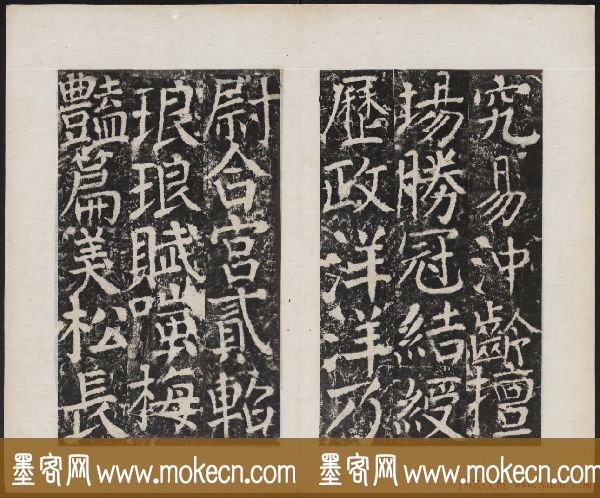 究易沖齡擅
場勝冠結綬
歷政洋洋乃
尉合宮貳軺
琅琅賦嗤梅
豔篇美松長
墨客网 www.mokecn.com
墨客网 www.mokecn.com